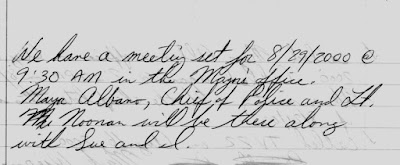 We have a meeting set for 8/29/2000 @
9:30 AM in the Mayors office.
Mayor Albano, Chief of Police and Lt.
Noonan will be there along
with Sue and I.